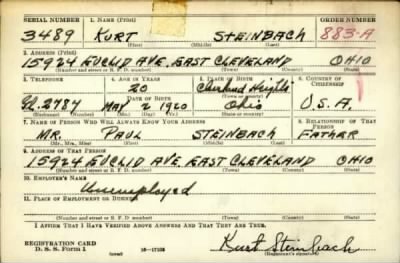 SERIAL NUMBER 1. NAME (Print) ORDER NUMBER
3489 KURT STEINBACH 883-A
(First) (Middle) (Last)
2. ADDRESS (Print)
15924 EUCLID AVE. EAST CLEVELAND OHIO
(Number and street or R. F. D. number) (Town) (County) (State)
3. TELEPHONE 4. AGE IN YEARS 5. PLACE OF BIRTH 6. COUNTRY OF CITIZENSHIP
20 Cleveland Heights
DATE OF BIRTH (Town or county)
GL. 2787 MAY 2 1920 Ohio U.S.A.
(Exchange) (Number) (Mo.) (Day) (Yr.) (State or country)
7. NAME OF PERSON WHO WILL ALWAYS KNOW YOUR ADDRESS 8. RELATIONSHIP OF THAT PERSON
MR. PAUL STEINBACH FATHER
(Mr., Mrs., Miss) (First) (Middle) (Last)
9. ADDRESS OF THAT PERSON
15924 EUCLID AVE. EAST CLEVELAND OHIO
(Number and street or R. F. D. number) (Town) (County) (State)
10. EMPLOYER'S NAME
Unemployed
11. PLACE OF EMPLOYMENT OR BUSINESS
(Number and street or R. F. D. number) (Town) (County) (State)
I AFFIRM THAT I HAVE VERIFIED ABOVE ANSWERS AND THAT THEY ARE TRUE.
REGISTRATION CARD
D. S. S. Form 1 (over) 16—17105 Kurt Steinbach
(Registrant's signature)